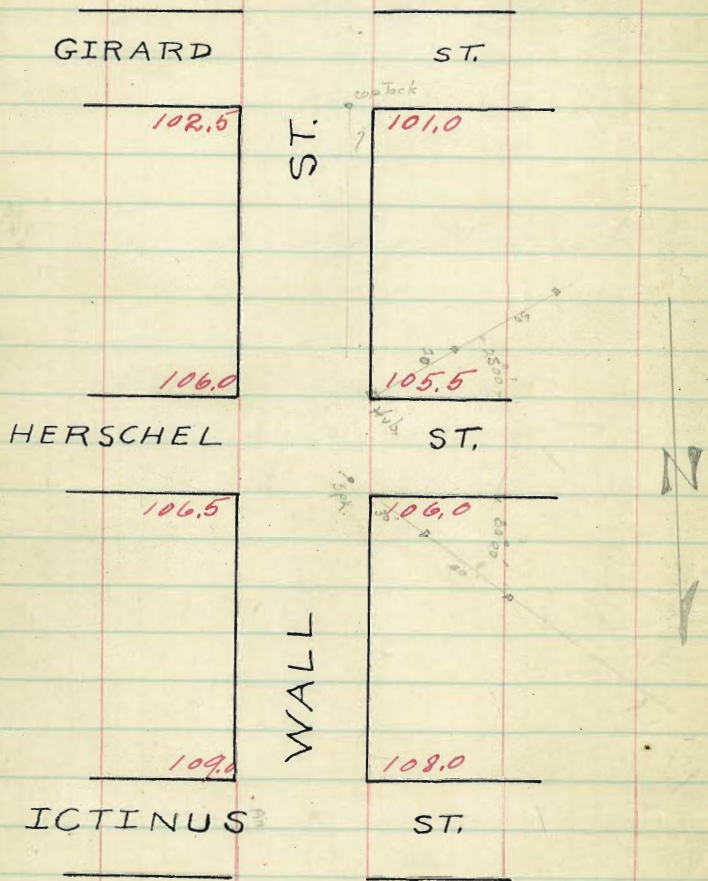 GIRARD ST.
cop Tack
102.5 101.0
WALL ST.
106.0 105.5
70
50
Hub.
HERSCHEL ST.
spk.
106.5 106.0
30
N
109.0 108.0
ICTINUS ST.